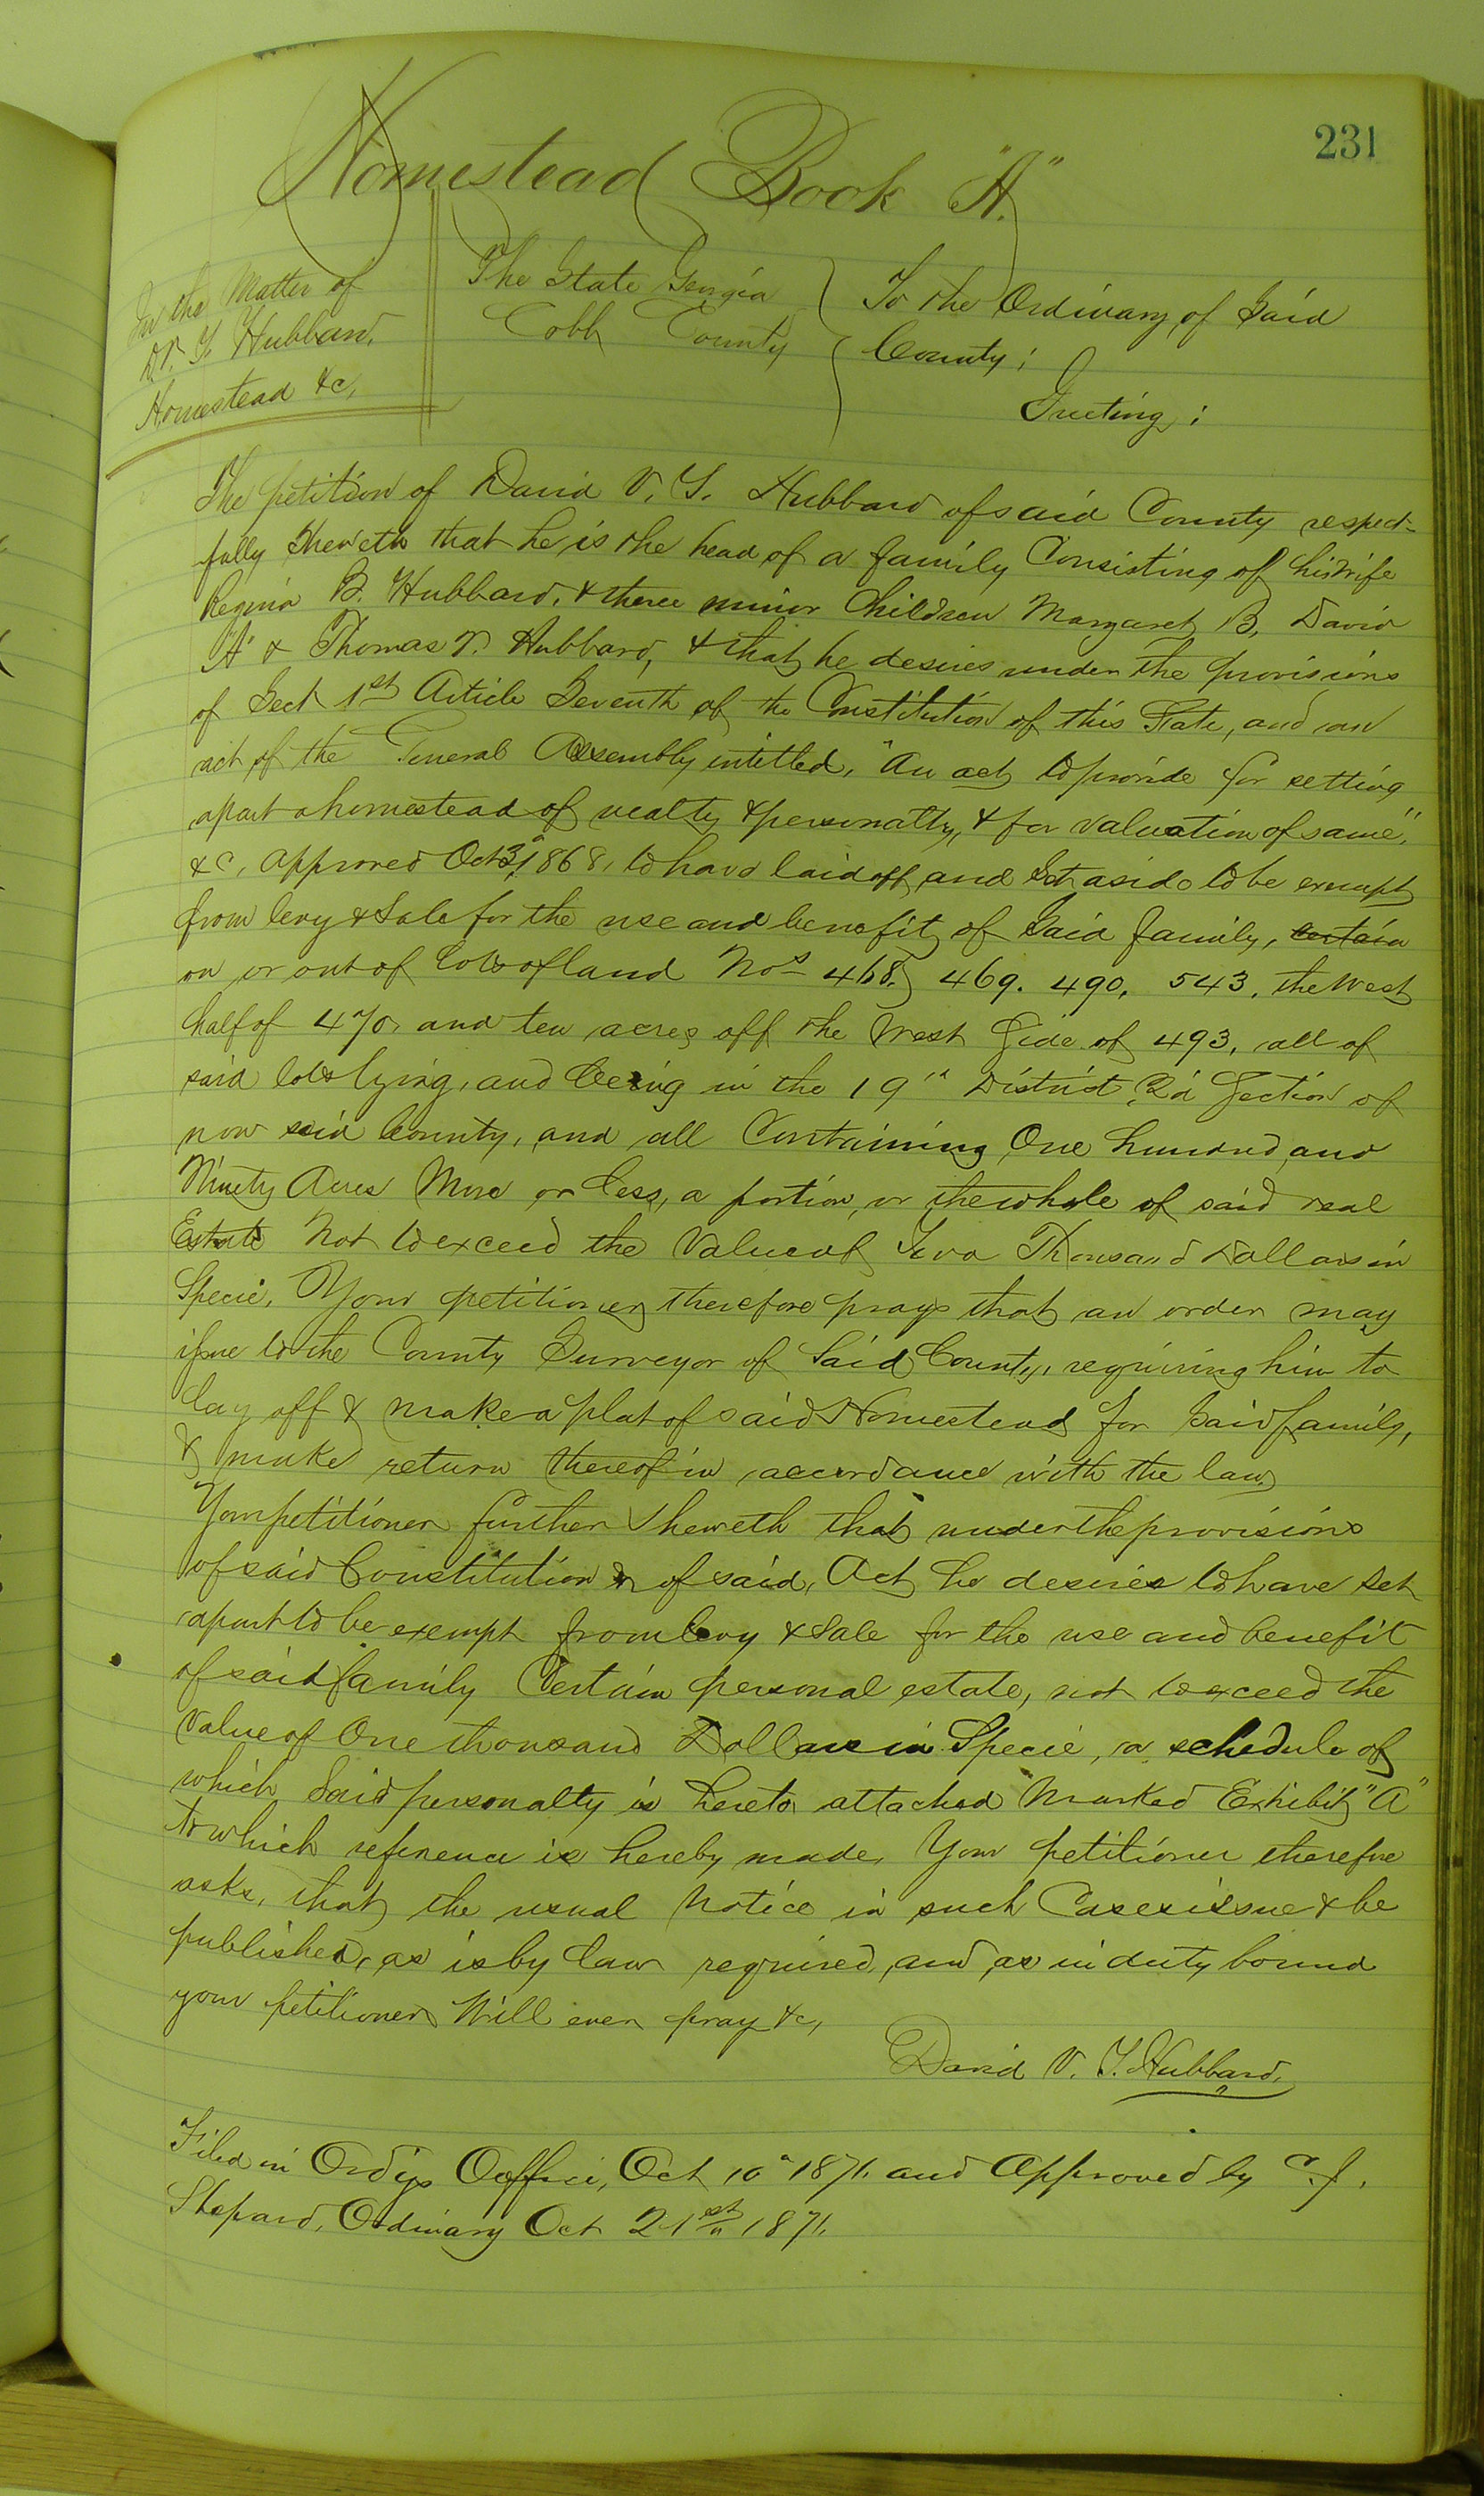 231
Homestead Book "A."
In the Matter of
D. V. T. Hubbard,
Homestead &c,
The State Georgia
Cobb County
To the Ordinary of Said
County;
Greeting;
The petition of David V. T. Hubbard of said County respect=
fully Sheweth that he is the head of a family Consisting of his wife
Regina B. Hubbard, & three minor Children Margaret B, David
"A" & Thomas V. Hubbard, & that he desires under the provisions
of Sect 1st Article Seventh of the Constitution of this State, and an
act of the General Assembly intitled, "An act to provide for setting
apart a homestead of realty & personalty, & for valuation of same,"
&c, approved Oct 3d 1868, to have laid off and Set aside to be exempt
from levy & Sale for the use and benefit of Said family, certain
on or out of lots of land Nos 468, 469. 490, 543, the West
half of 470, and ten acres off the West Side of 493, all of
said lots lying, and being in the 19" District, 2d Section of
now said County, and all Containing One hundred and
Ninety Acres More or less, a portion, or the whole of said real
Estate Not to exceed the Value of Two Thousand Dollars in
Specie, Your petitioner therefore prays that an order may
issue to the County Surveyor of Said County, requiring him to
lay off & make a plat of said Homestead for Said family,
& make return thereof in accordance with the law
Your petitioner further Sheweth that under the provisions
of said Constitution & of said, Act he desires to have set
apart to be exempt from levy & Sale for the use and benefit
of said family Certain personal estate, not to exceed the
Value of One thousand Dollars in Specie, a schedule of
which Said personalty is hereto attached Marked Exhibit "A"
to which reference is hereby made, Your petitioner therefore
asks, that the usual Notice in such Cases issue & be
published, as is by law required, and as in duty bound
your petitioner Will ever pray &c,
David V. T. Hubbard,
Filed in Ordys Ooffice, Oct 10" 1871, and Approved by C. J.
Shepard, Ordinary Oct 21st 1871,